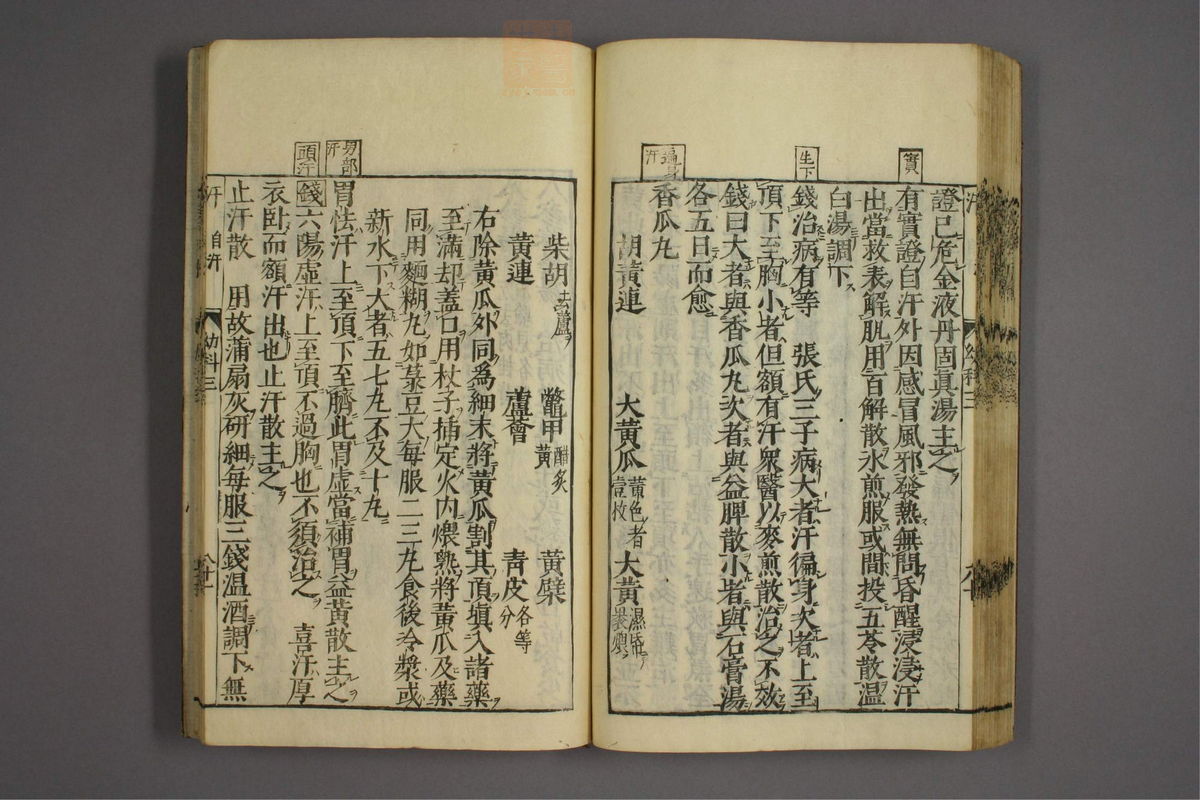 實
生下
遍身汗
證已危金液丹固真湯主之
有實證自汗外因感冒風邪發熱無問昏醒浸浸汗
出當救表解肌用百解散水煎服或間投五苓散温
白湯調下
錢治病有等 張氏三子病大者汗徧身次者上至
頂下至胸小者但額有汗衆醫以麥煎散治之不效
錢曰大者與香瓜丸次者與益脾散小者與石膏湯
各五日而愈
香瓜丸
胡黄連 大黄瓜黄色者壹枚 大黄濕紙裹煨
柴胡去蘆 鱉甲醋炙黄 黄檗
黄連 蘆薈 青皮各等分
右除黄瓜外同為細末將黄瓜割其頂填入諸藥
至滿却蓋口用杖子插定火内煨熟將黄瓜及藥
同用麵糊丸如菉豆大每服二三丸食後冷漿或
新水下大者五七丸不及十丸
胃怯汗上至頂下至臍此胃虚當補胃益黄散主之
錢六陽虚汗上至頂不過胸也不須治之 喜汗厚
衣卧而額汗出也止汗散主之
止汗散 用故蒲扇灰研細每服三錢温酒調下無
汗 自汗 幼科三
頭汗